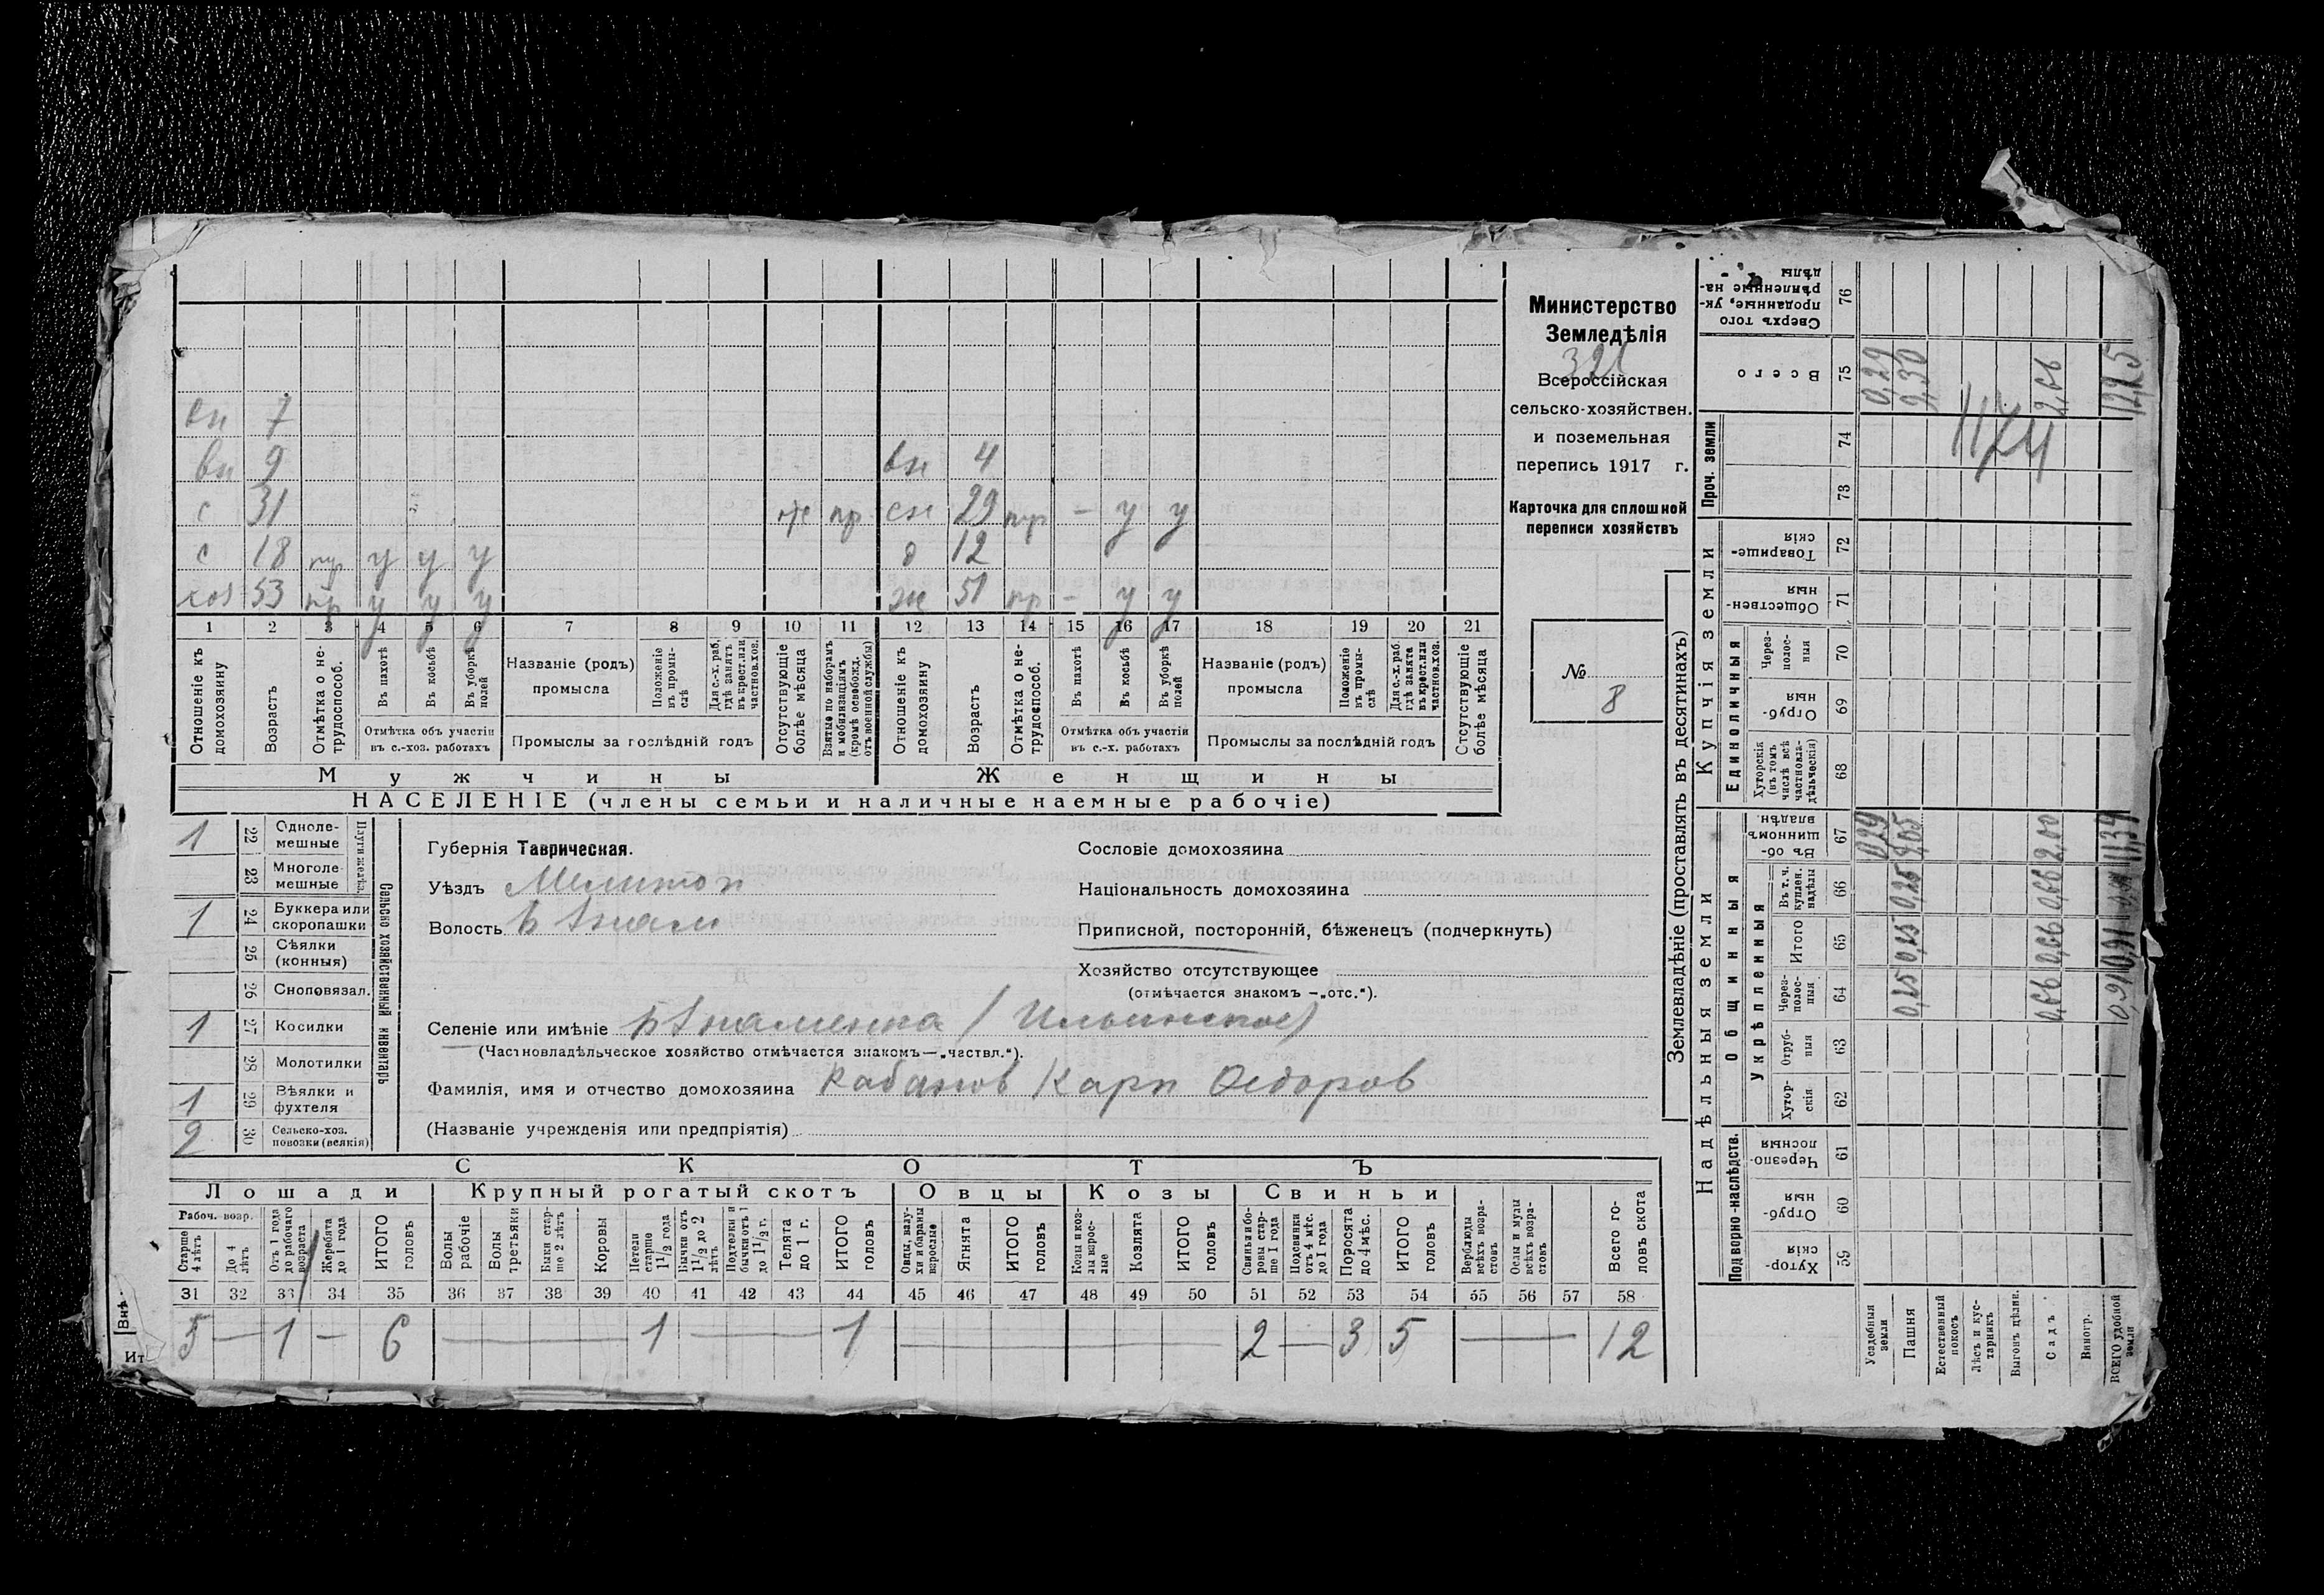 вн 7
вн 9 вн 4
с 31 пр сн 29 пр - у у
с 18 пр у у у д 12
хоз 53 пр у у у ж 51 пр - у у
1 2 3 4 5 6 7 8 9 10 11 12 13 14 15 16 17 18 19 20 21
Отношеніе къ домохозяину
Возрастъ
Отмѣтка о не-трудоспособ.
Въ пахотѣ
Въ косьбѣ
Въ уборкѣ полей
Отмѣтка объ участіи въ с.-хоз. работахъ
Названіе (родъ) промысла
Положеніе въ промы-слѣ
Для с.-х. раб. гдѣ занятъ въ крест. или частнов. хоз.
Промыслы за послѣдній годъ
Отсутствующіе болѣе мѣсяца
Взятые по наборамъ и мобилизаціямъ (кромѣ освобожд. отъ военной службы)
Отношеніе къ домохозяину
Возрастъ
Отмѣтка о не-трудоспособ.
Въ пахотѣ
Въ косьбѣ
Въ уборкѣ полей
Отмѣтка объ участіи въ с.-х. работахъ
Названіе (родъ) промысла
Положеніе въ промы-слѣ
Для с.-х. раб. гдѣ занята въ крест. или частнов. хоз.
Промыслы за послѣдній годъ
Отсутствующіе болѣе мѣсяца
Мужчины Женщины
НАСЕЛЕНІЕ (члены семьи и наличные наемные рабочіе)
Министерство
Земледѣлія
321
Всероссійская
сельско-хозяйствен.
и поземельная
перепись 1917 г.
Карточка для сплошной
переписи хозяйствъ
№ 8
1 22 Одноле-мешные
23 Многоле-мешные
1 24 Буккера или скоропашки
25 Сѣялки (конныя)
26 Сноповязал.
1 27 Косилки
28 Молотилки
1 29 Вѣялки и фухтеля
2 30 Сельско-хоз. повозки (всякія)
Сельско хозяйственный инвентарь
Губернія Таврическая.
Уѣздъ Мелитоп
Волость Б Знам
Селеніе или имѣніе Б Знаменка (Ильинское)
(Частновладѣльческое хозяйство отмѣчается знакомъ—„частвл.“).
Фамилія, имя и отчество домохозяина Кабанов Карп Федоров
(Названіе учрежденія или предпріятія)
Сословіе домохозяина
Національность домохозяина
Приписной, посторонній, бѣженецъ (подчеркнуть)
Хозяйство отсутствующее
(отмѣчается знакомъ —„отс.“).
СКОТЪ
Лошади Крупный рогатый скотъ Овцы Козы Свиньи
Рабоч. возр.
Старше 4 лѣтъ
До 4 лѣтъ
Отъ 1 года до рабочаго возраста
Жеребята до 1 года
ИТОГО головъ
Волы рабочіе
Волы третьяки
Быки стар-ше 2 лѣтъ
Коровы
Нетели старше 1½ года
Бычки отъ 1½ до 2 лѣтъ
Подтелки и бычки отъ 1 до 1½ г.
Телята до 1 г.
ИТОГО головъ
Овцы, валу-хи и бараны взрослые
Ягнята
ИТОГО головъ
Козы и коз-лы взрос-лые
Козлята
ИТОГО головъ
Свиньи и бо-ровы стар-ше 1 года
Подсвинки отъ 4 мѣс. до 1 года
Поросята до 4 мѣс.
ИТОГО головъ
Верблюды всѣхъ возра-стовъ
Ослы и мулы всѣхъ возра-стовъ
Всего го-ловъ скота
31 32 33 34 35 36 37 38 39 40 41 42 43 44 45 46 47 48 49 50 51 52 53 54 55 56 57 58
5 — 1 — 6 — 1 — 1 — 2 — 3 5 — 12
Внѣ
Ит
Землевладѣніе (проставлять въ десятинахъ)
Надѣльныя земли Купчія земли Проч. земли
Подворно-наслѣдств. Общинныя Единоличныя
Укрѣпленныя
59 Хутор-скія
60 Отруб-ныя
61 Черезпо-лосныя
62 Хутор-скія
63 Отруб-ныя
64 Через-полос-ныя
65 Итого
66 Въ т. ч. куплен. надѣлы
67 Въ об-щинномъ владѣн.
68 Хуторскія (въ томъ числѣ всѣ частновла-дѣльческія)
69 Отруб-ныя
70 Через-полос-ныя
71 Обществен-ныя
72 Товарище-скія
73
74
75 Всего
76 Сверхъ того проданные, ук-рѣпленные на-дѣлы
Усадебныя земли 0,29 0,29
Пашня 0,25 0,25 0,25 9,05 9,30
Естественный покосъ
Лѣсъ и кус-тарникъ
Выгонъ цѣлин.
Садъ 0,66 0,66 0,66 2,00 2,66
Виногр.
ВСЕГО удобной земли 0,91 0,91 0,91 11,34 12,25